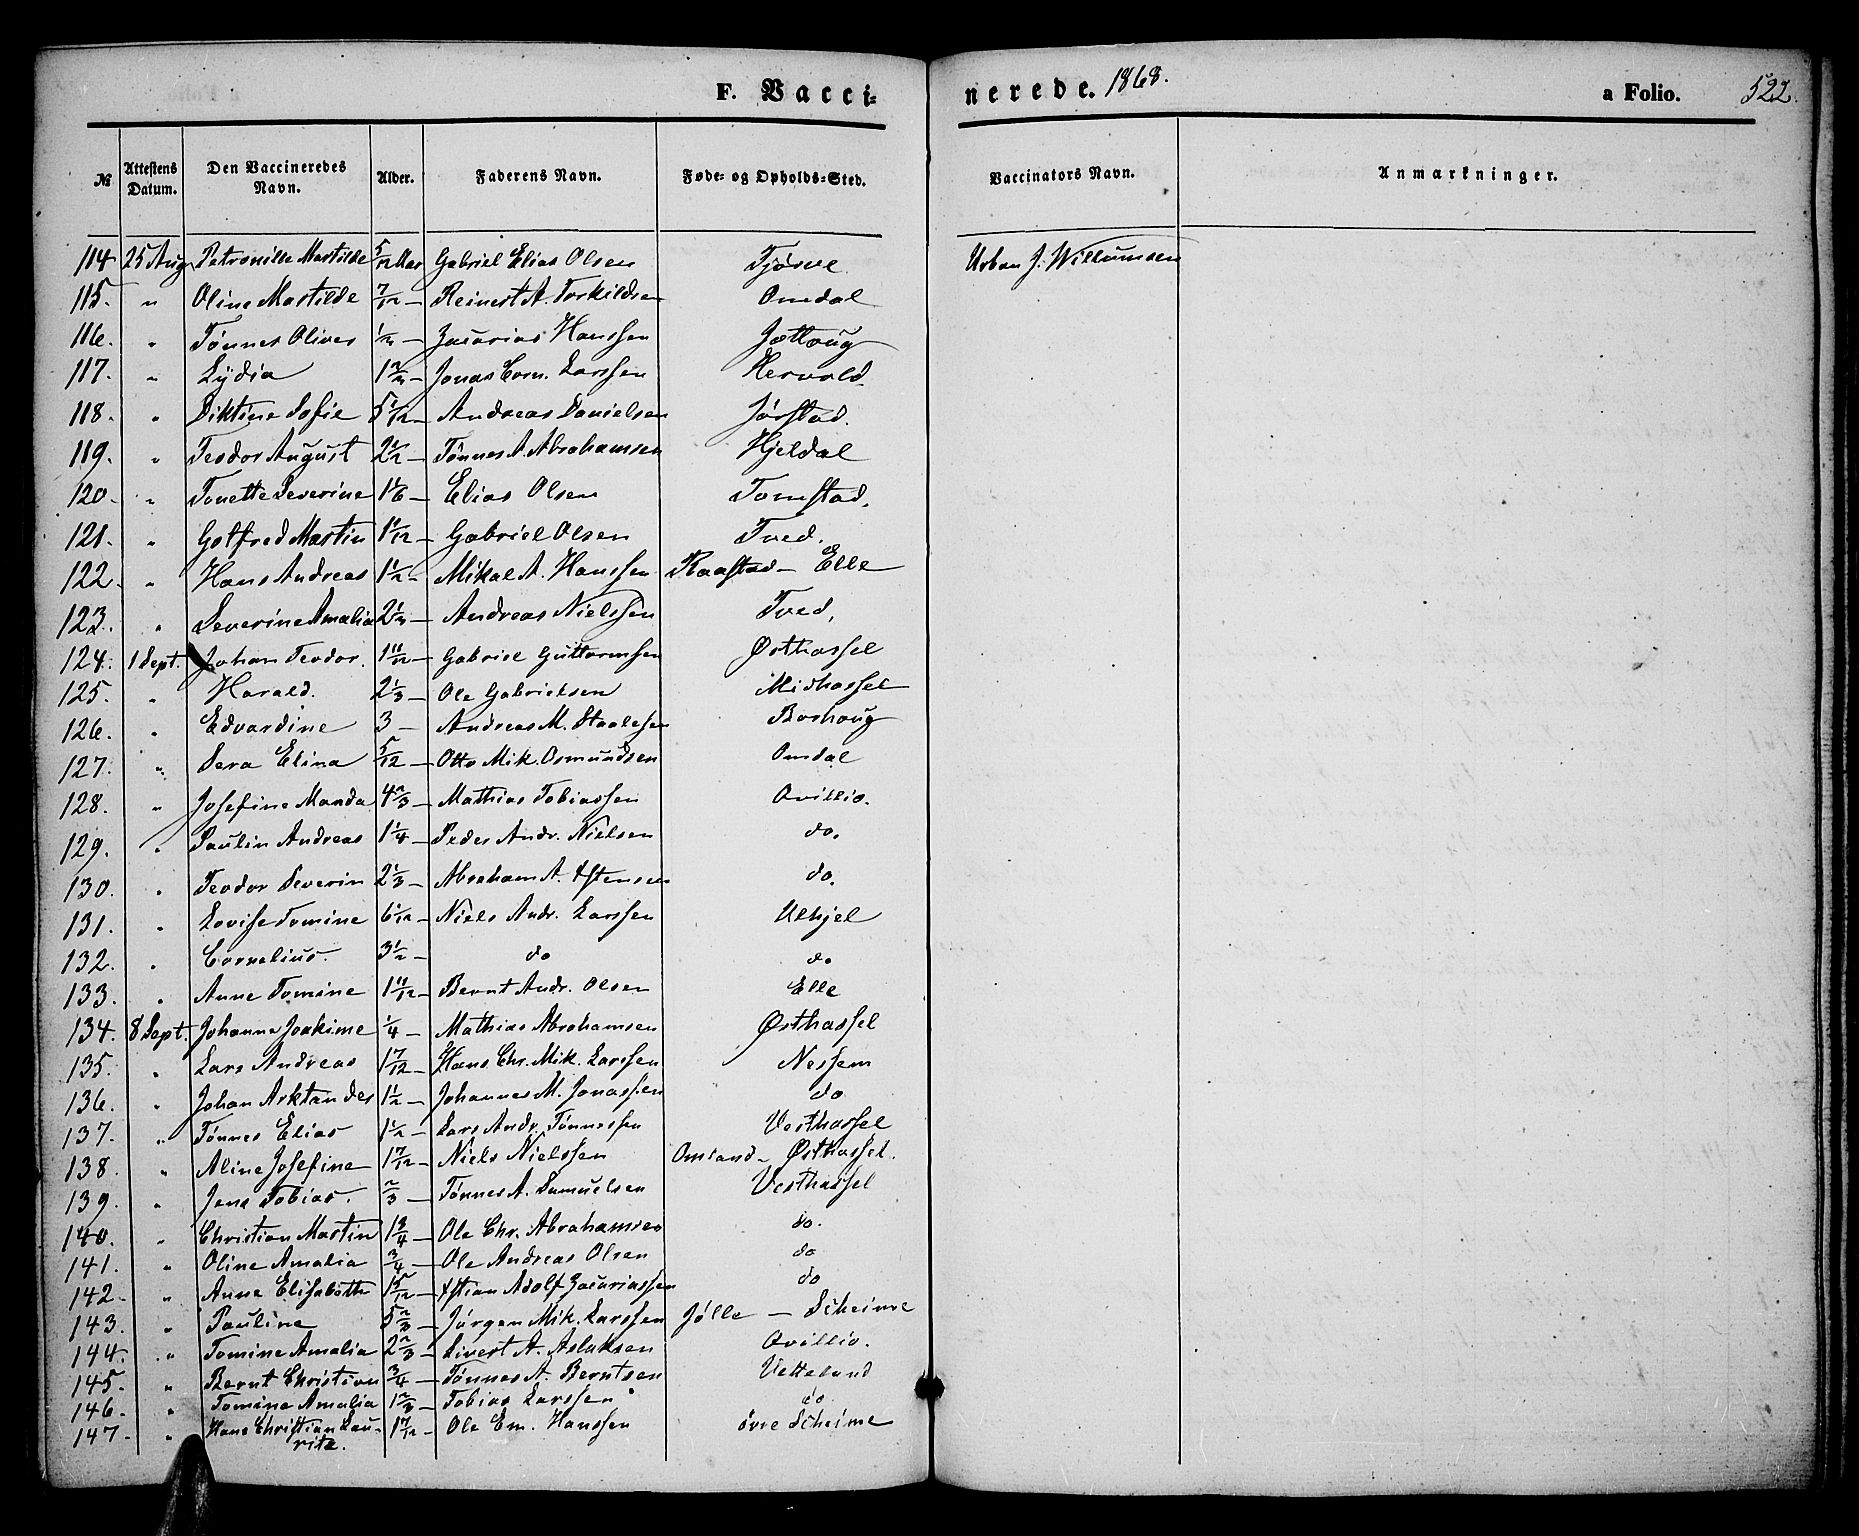 F. Vaccinerede. 1868. a Folio. 522.
№ Attestens Datum. Den Vaccineredes Navn. Alder. Faderens Navn. Føde- og Opholds-Sted. Vaccinators Navn. Anmærkninger.
114 25 Aug Petronille Mathilde 5/12 Aar Gabriel Elias Olsen Tjørve Urban J. Willumsen
115. " Oline Mathilde 7/12 — Reinert A. Torkildsen Omdal
116. " Tønnes Oliver 1/2 — Zacarias Hanssen Jøllhoug
117. " Lydia 1 2/3 — Jonas Corn. Larssen Hervold
118. " Diktine Sofie 5 1/12 — Andreas Danielsen Jørstad.
119. " Teodor August 2 1/2 — Tønnes A. Abrahamsen Hjeldal
120. " Tonette Severine 1 1/6 — Elias Olsen Tomstad.
121. " Gotfred Martin 1 1/12 — Gabriel Olsen Tved.
122. " Hans Andreas 1 1/2 — Mikal A. Hanssen Raastad — Elle
123. " Severine Amalia 2 1/3 — Andreas Nielssen Tved,
124. 1 Sept. Johan Teodor. 1 11/12 — Gabriel Guttormsen Østhassel
125. " Harald. 2 1/3 — Ole Gabrielsen Midhassel
126. " Edvardine 3 — Andreas M. Staalesen Borhoug
127. " Sera Elina 5/12 — Otto Mik. Osmundsen Omdal
128. " Josefine Manda 4 2/3 — Mathias Tobiassen Ovillio.
129. " Paulin Andreas 1 1/4 — Peder Andr. Nielsen do.
130. " Teodor Severin 2 1/3 — Abraham A. Istensen do.
131. " Lovise Tomine 6 1/12 — Niels Andr. Larssen Ulhjel
132. " Cornelius. 3 1/2 — do do
133. " Anne Tomine 1 11/12 — Bernt Andr. Olsen Elle
134. 8 Sept. Johanne Joakime 1/4 — Mathias Abrahamsen Østhassel
135. " Lars Andreas 1 7/12 — Hans Chr. Mik. Larssen Nessem
136. " Johan Arktander 1 1/2 — Johannes M. Jonassen do
137. " Tønnes Elias 1 1/2 — Lars Andr. Tønnessen Vesthassel
138. " Aline Josefine 1 7/12 — Niels Nielssen Omland — Østhassel.
139. " Jens Tobias. 2/3 — Tønnes A. Samuelsen Vesthassel
140. " Christian Martin 1 3/4 — Ole Chr. Abrahamsen do.
141. " Oline Amalia 3/4 — Ole Andreas Olsen do
142. " Anne Elisabeth 1 5/12 — Stian Adolf Zacariassen do
143. " Pauline 5 2/3 — Jørgen Mik. Larssen Jølle — Scheime
144. " Tomine Amalia 2 2/3 — Sivert A. Aslaksen Ovillio.
145. " Bernt Christian 3/4 — Tønnes A. Berntsen Vetteland
146. " Tomine Amalia 1 2/3 — Tobias Larssen do
147. " Hans Christian Lauritz. 1 7/12 — Ole Em. Hanssen øvre Scheime